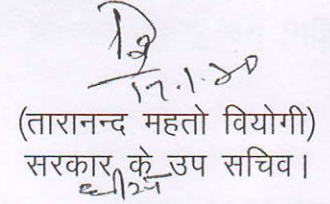 17.1.20
(तारानन्द महतो वियोगी)
सरकार के उप सचिव।